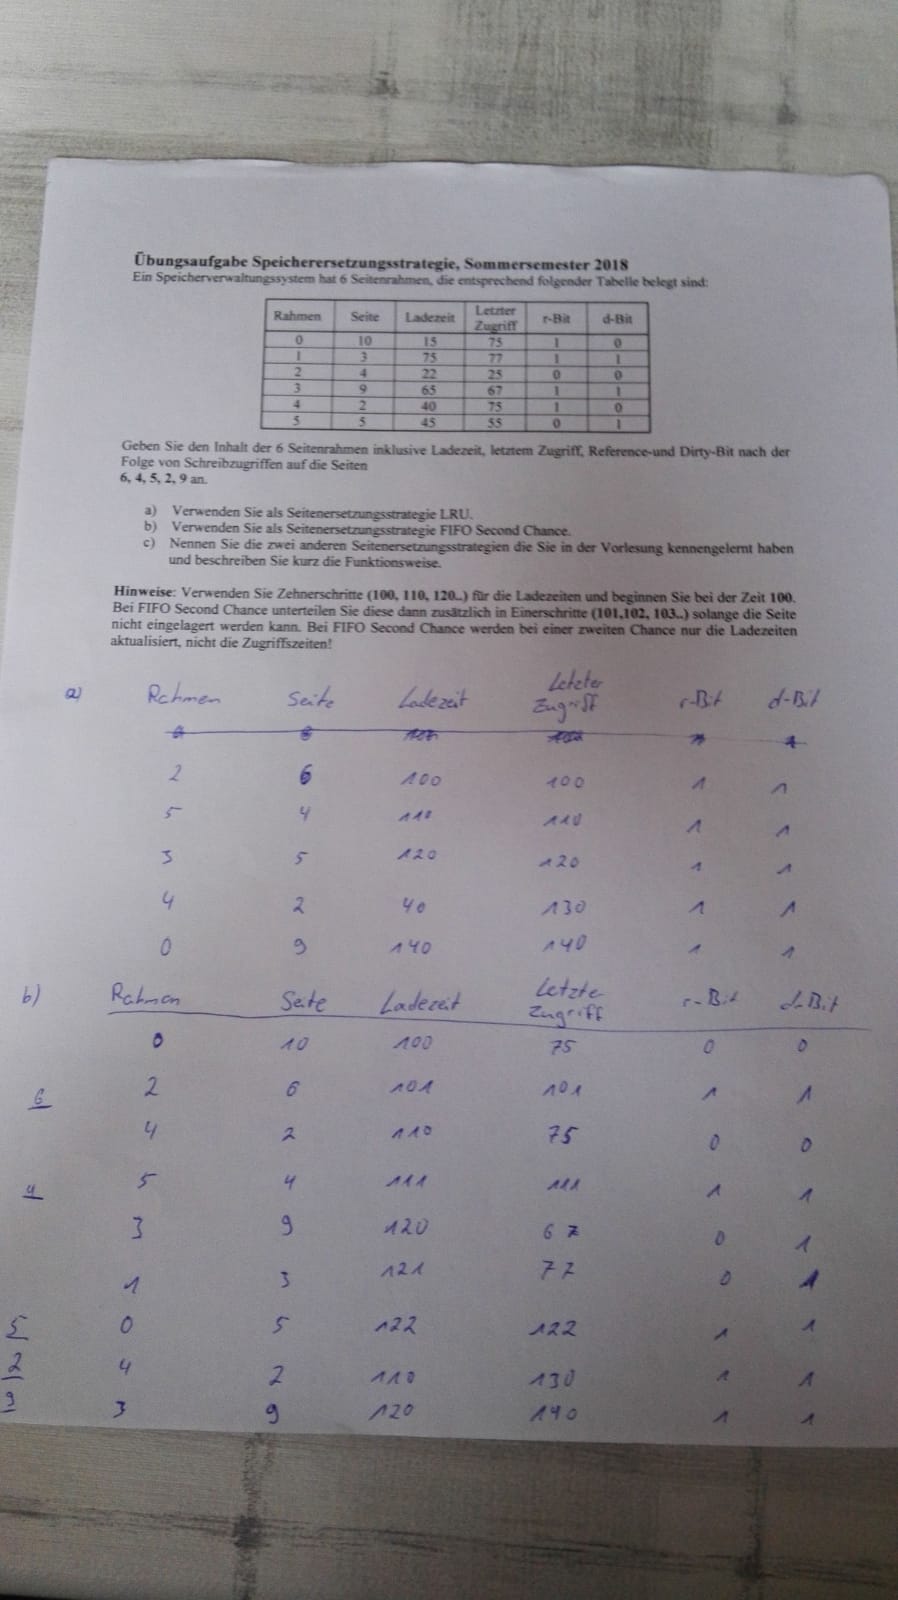 Übungsaufgabe Speicherersetzungsstrategie, Sommersemester 2018
Ein Speicherverwaltungssystem hat 6 Seitenrahmen, die entsprechend folgender Tabelle belegt sind:
Rahmen Seite Ladezeit Letzter Zugriff r-Bit d-Bit
0 10 15 75 1 0
1 3 75 77 1 1
2 4 22 25 0 0
3 9 65 67 1 1
4 2 40 75 1 0
5 5 45 55 0 1
Geben Sie den Inhalt der 6 Seitenrahmen inklusive Ladezeit, letztem Zugriff, Reference-und Dirty-Bit nach der
Folge von Schreibzugriffen auf die Seiten
6, 4, 5, 2, 9 an.
a) Verwenden Sie als Seitenersetzungsstrategie LRU.
b) Verwenden Sie als Seitenersetzungsstrategie FIFO Second Chance.
c) Nennen Sie die zwei anderen Seitenersetzungsstrategien die Sie in der Vorlesung kennengelernt haben
und beschreiben Sie kurz die Funktionsweise.
Hinweise: Verwenden Sie Zehnerschritte (100, 110, 120..) für die Ladezeiten und beginnen Sie bei der Zeit 100.
Bei FIFO Second Chance unterteilen Sie diese dann zusätzlich in Einerschritte (101,102, 103..) solange die Seite
nicht eingelagert werden kann. Bei FIFO Second Chance werden bei einer zweiten Chance nur die Ladezeiten
aktualisiert, nicht die Zugriffszeiten!
a) Rahmen Seite Ladezeit Letzter Zugriff r-Bit d-Bit
2 6 100 100 1 1
5 4 110 110 1 1
3 5 120 120 1 1
4 2 40 130 1 1
0 9 140 140 1 1
b) Rahmen Seite Ladezeit Letzte Zugriff r-Bit d-Bit
0 10 100 75 0 0
6 2 6 101 101 1 1
4 2 110 75 0 0
4 5 4 111 111 1 1
3 9 120 67 0 1
1 3 121 77 0 1
5 0 5 122 122 1 1
2 4 2 110 130 1 1
9 3 9 120 140 1 1